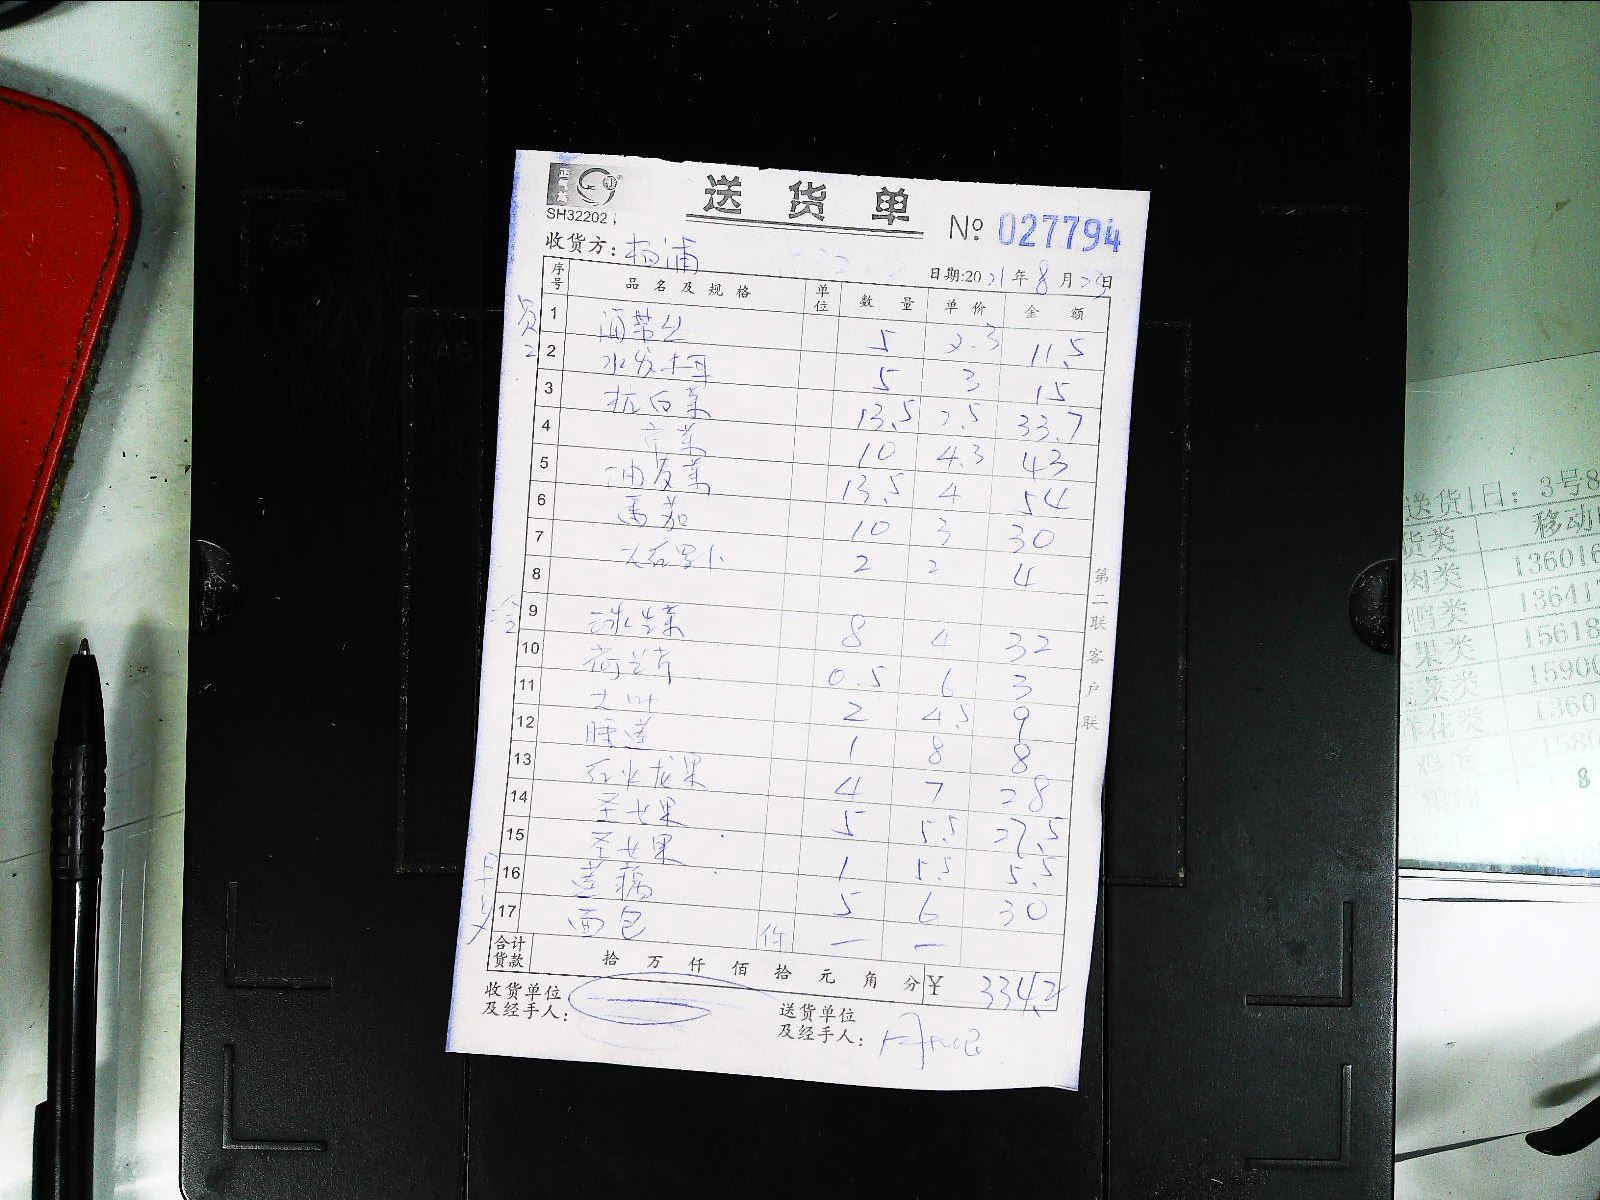 正气象
SH32202
送货单
№ 027794
收货方: 杨浦
日期:2021年8月29日
序号 品名及规格 单位 数量 单价 金额
1 海带丝 5 2.3 11.5
2 水发木耳 5 3 15
3 杭白菜 13.5 2.5 33.7
4 京菜 10 4.3 43
5 油麦菜 13.5 4 54
6 番茄 10 3 30
7 大白萝卜 2 2 4
8
9 冰生菜 8 4 32
10 荷兰芹 0.5 6 3
11 大叶 2 4.5 9
12 睡莲 1 8 8
13 红火龙果 4 7 28
14 圣女果 5 5.5 27.5
15 圣女果 1 5.5 5.5
16 莲藕 5 6 30
17 面包 件 一 一
合计货款 拾万仟佰拾元角分 ¥ 334.2
收货单位及经手人:
送货单位及经手人:
第二联客户联
送货1日: 3号8
货类 移动
肉类 13601
鸭类 13641
果类 15618
菜类 1590
花类 1360
鸡蛋 1580
8